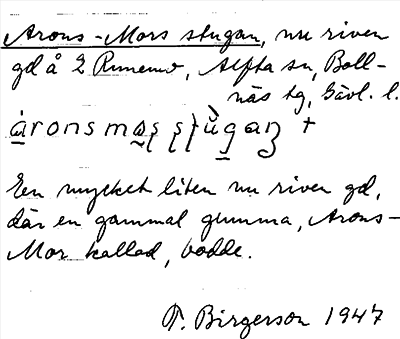 Arons-Mors stugan, nu riven
gd å 2 Runemo, Alfta sn, Boll-
näs tg, Gävl. l.
En mycket liten nu riven gd,
där en gammal gumma, Arons-
Mor kallad, bodde.
T. Birgerson 1947